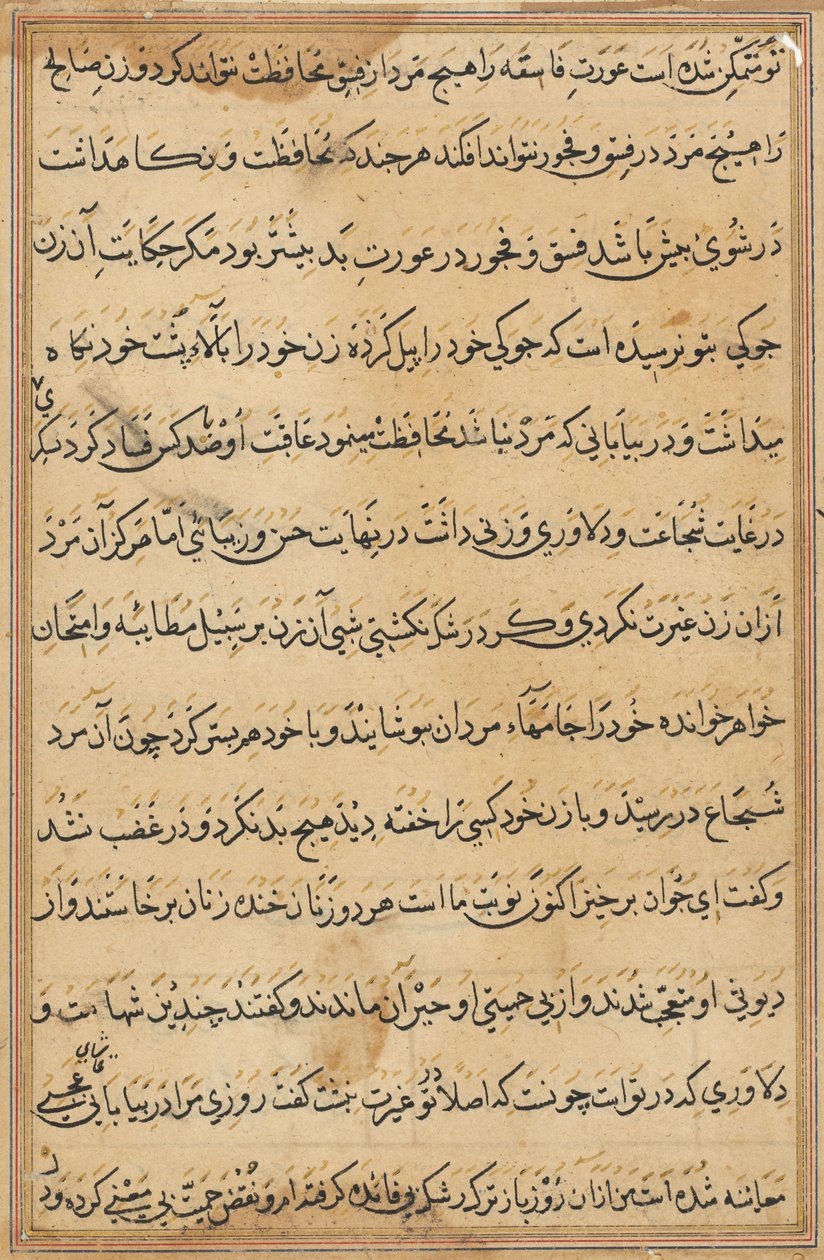 تو متمکّن شده است عورتِ فاسقه را هیچ مرد از فسق محافظت نتواند کرد و زنِ صالح
را هیچ مرد در فسق و فجور نتواند افکند هر چند که محافظت و نکاهداشت
در شوی بیش باشد فسق و فجور در عورتِ بد بیشتر بود مکر حکایتِ آن زن
جوکی بتو نرسیده است که جوکی خود را پیل کرده زنِ خود را بالاء پشت خود نکاه
میداشت و در بیابانی که مرد نباشد محافظت مینمود عاقبت او با صد کس فساد کرد
در غایت شجاعت و دلاوری و زنی داشت در نهایت حسن و زیبائی امّا هرکز آن مرد
از آن زن غیرت نکردی و کرد رشک نکشتی شبی آن زن بر سبیل مطایبه و امتحان
خواهر خوانده خود را جامهاء مردان بپوشانید و با خود هم بستر کرد چون آن مرد
شجاع در رسید و با زن خود کسی را خفته دید هیچ بد نکرد و در غضب نشد
و کفت ای جوان بر خیز اکنون نوبت ما است هر دو زنان خنده زنان بر خاستند و از
دیوثی او متعجّب شدند و از بی حمیتی او حیران ماندند و کفتند چندین شهامت و
دلاوری که در تو است چونست که اصلا در تو غیرت نیست کفت روزی مرا در بیابانی عجب تماشای
معاینه شده است من از آن روز باز ترک رشک بی فائده کرفته ام و نقض حمیّت بی معنی کرده